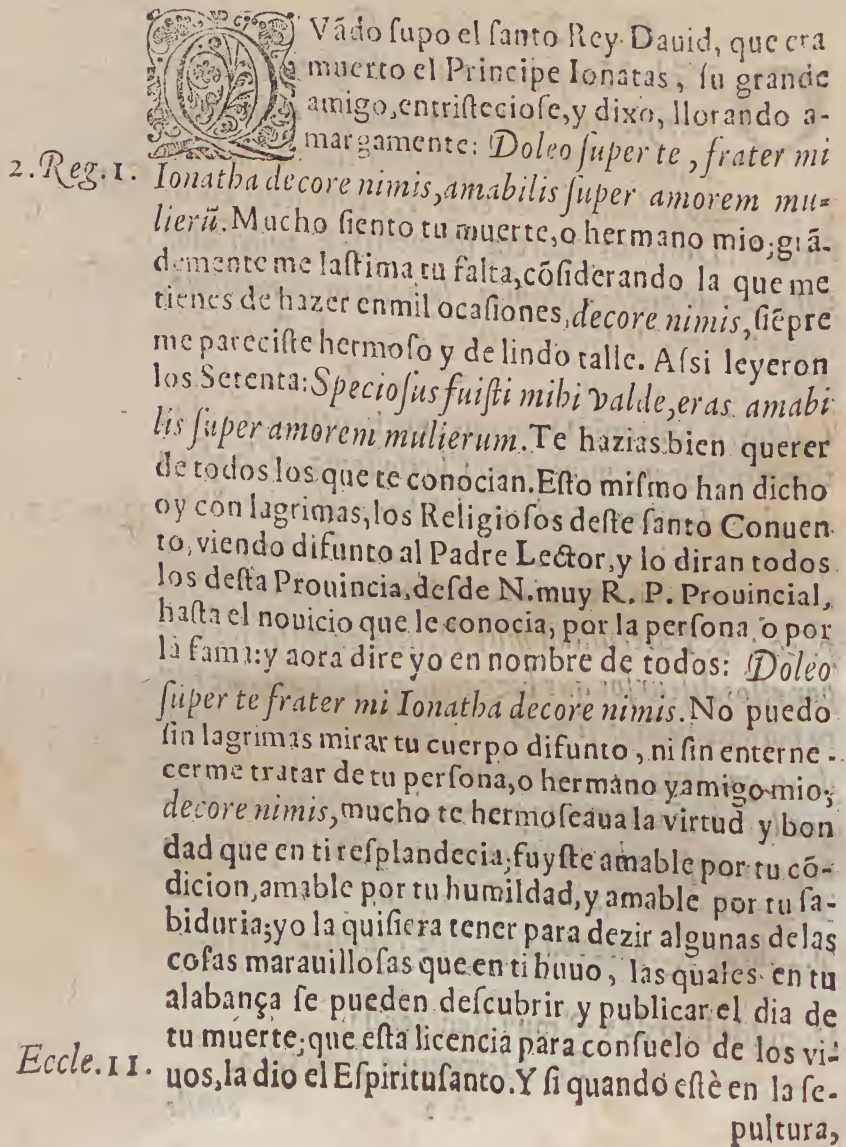 QVãdo ſupo el ſanto Rey Dauid, que era
muerto el Principe Ionatas, ſu grande
amigo, entriſtecioſe, y dixo, llorando a-
margamente: Doleo ſuper te, frater mi
2. Reg. 1. Ionatha decore nimis, amabilis ſuper amorem mu-
lierũ. Mucho ſiento tu muerte, o hermano mio; grã-
demente me laſtima tu falta, cõſiderando la que me
tienes de hazer en mil ocaſiones, decore nimis, ſiẽpre
me pareciſte hermoſo y de lindo talle. Aſsi leyeron
los Setenta: Specioſus fuiſti mihi valde, eras amabi
lis ſuper amorem mulierum. Te hazias bien querer
de todos los que te conocian. Eſto miſmo han dicho
oy con lagrimas, los Religioſos deſte ſanto Conuen
to, viendo difunto al Padre Lector, y lo diran todos
los deſta Prouincia, deſde N. muy R. P. Prouincial,
haſta el nouicio que le conocia, por la perſona, o por
la fama: y aora dire yo en nombre de todos: Doleo
ſuper te frater mi Ionatha decore nimis. No puedo
ſin lagrimas mirar tu cuerpo difunto, ni ſin enterne-
cerme tratar de tu perſona, o hermano y amigo mio;
decore nimis, mucho te hermoſeaua la virtud y bon
dad que en ti reſplandecia, fuyſte amable por tu cõ-
dicion, amable por tu humildad, y amable por tu ſa-
biduria; yo la quiſiera tener para dezir algunas delas
coſas marauilloſas que en ti huuo, las quales en tu
alabança ſe pueden deſcubrir y publicar el dia de
tu muerte; que eſta licencia para conſuelo de los vi-
Eccle. 11. uos, la dio el Eſpirituſanto. Y ſi quando eſtè en la ſe-
pultura,